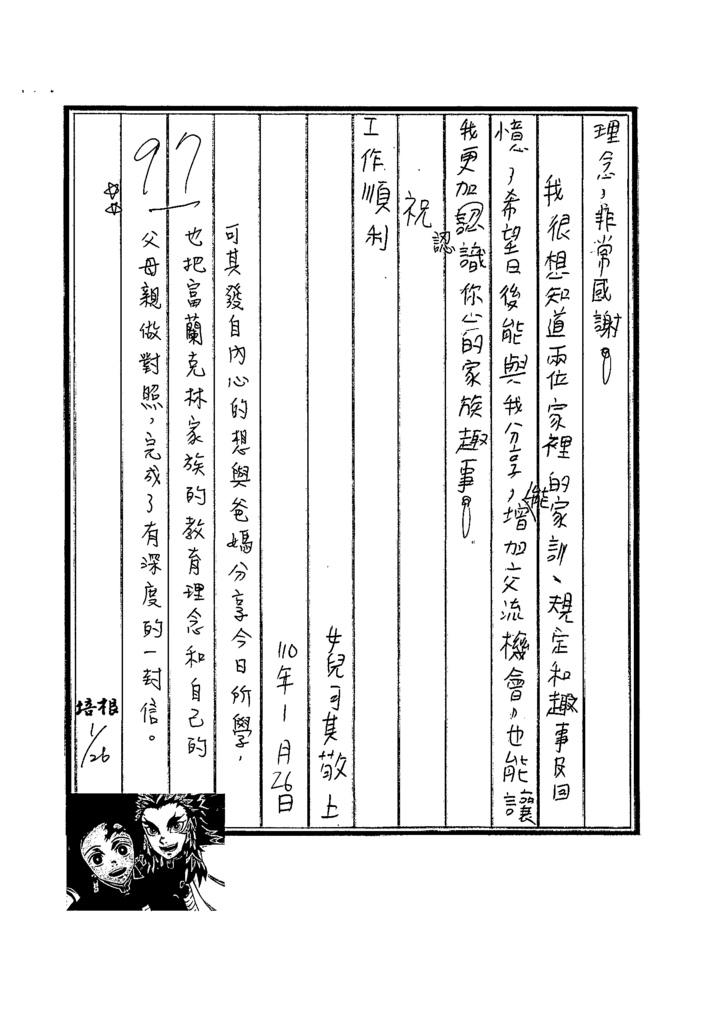 理念，非常感謝！
我很想知道兩位家裡的家訓、規定和趣事及回
憶，希望日後能與我分享，增加交流機會，也能讓
能
我更加認識你們的家族趣事！
認
祝
工作順利
女兒可其敬上
110年1月26日
可其發自內心的想與爸媽分享今日所學，
也把富蘭克林家族的教育理念和自己的
父母親做對照，完成了有深度的一封信。
97
培根
1/26